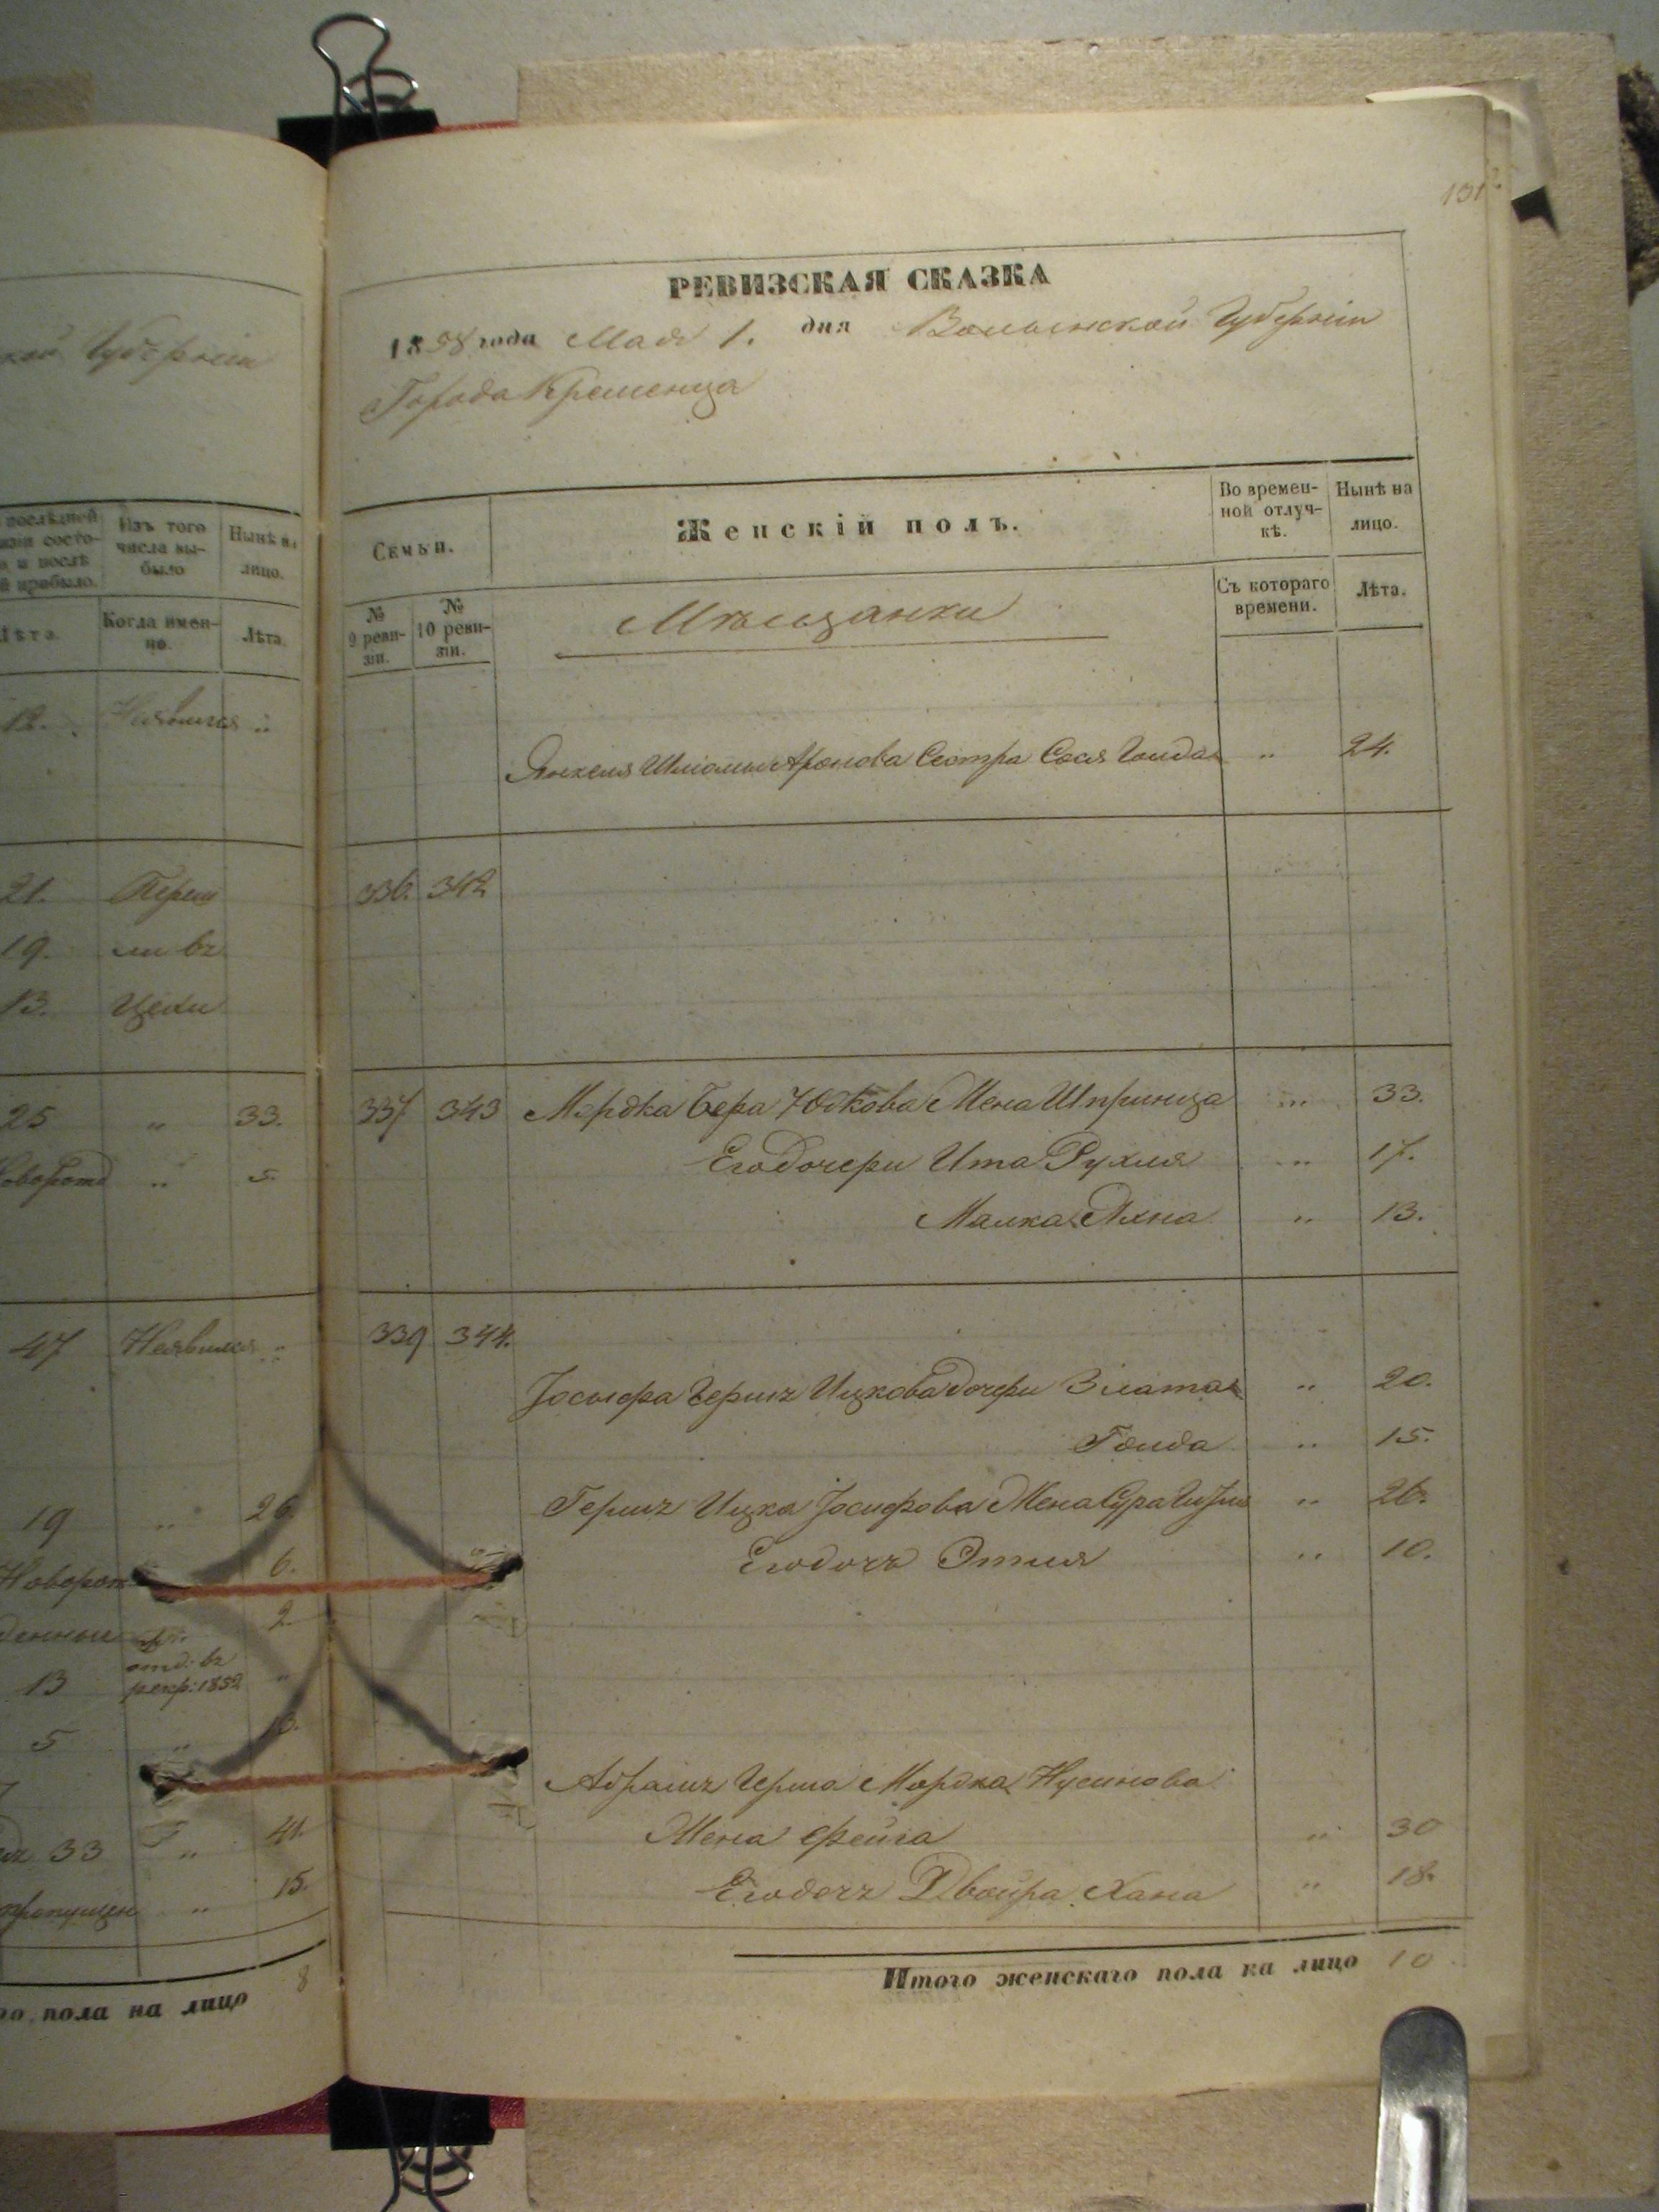 131
кой Губерніи
последней
визіи состо-
и послѣ
й прибыло.
Изъ того
числа вы-
было
Нынѣ на
лицо.
Лѣта.
Когда имен-
но.
Лѣта.
12. Неявился "
21. Переш
19. ли въ
13. Цехи
25 " 33.
новорожд " 5.
47 Неявился "
19 " 26.
Новорож 6.
денные " 2.
13 отд: въ рекр: 1852 "
5 "
33 " 41.
пропущен " 15.
го пола на лицо 8
РЕВИЗСКАЯ СКАЗКА
1858 года Мая 1. дня Волынской Губерніи
Города Кременца
Семьи.
Женскій полъ.
Во времен-
ной отлуч-
кѣ.
Нынѣ на
лицо.
№
9 реви-
зіи.
№
10 реви-
зіи.
Мѣщанки
Съ котораго
времени.
Лѣта.
Янкеля Шліомы Аронова Сестра Сося Голда " 24.
336. 342
337 343 Мордка Бера Юдкова Жена Шпринца " 33.
Его дочери Ита Рухля " 17.
Малка Яхна " 13.
339 344.
Іосыфа Герша Ицкова дочери Злата " 20.
Голда " 15.
Гершъ Ицка Іосифова Жена Сура " 26.
Его дочь Этля " 10.
Абрамъ Герша Мордка Нусинова
Жена Фейга " 30
Его дочь Двойра Хана " 18.
Итого женскаго пола на лицо 10.